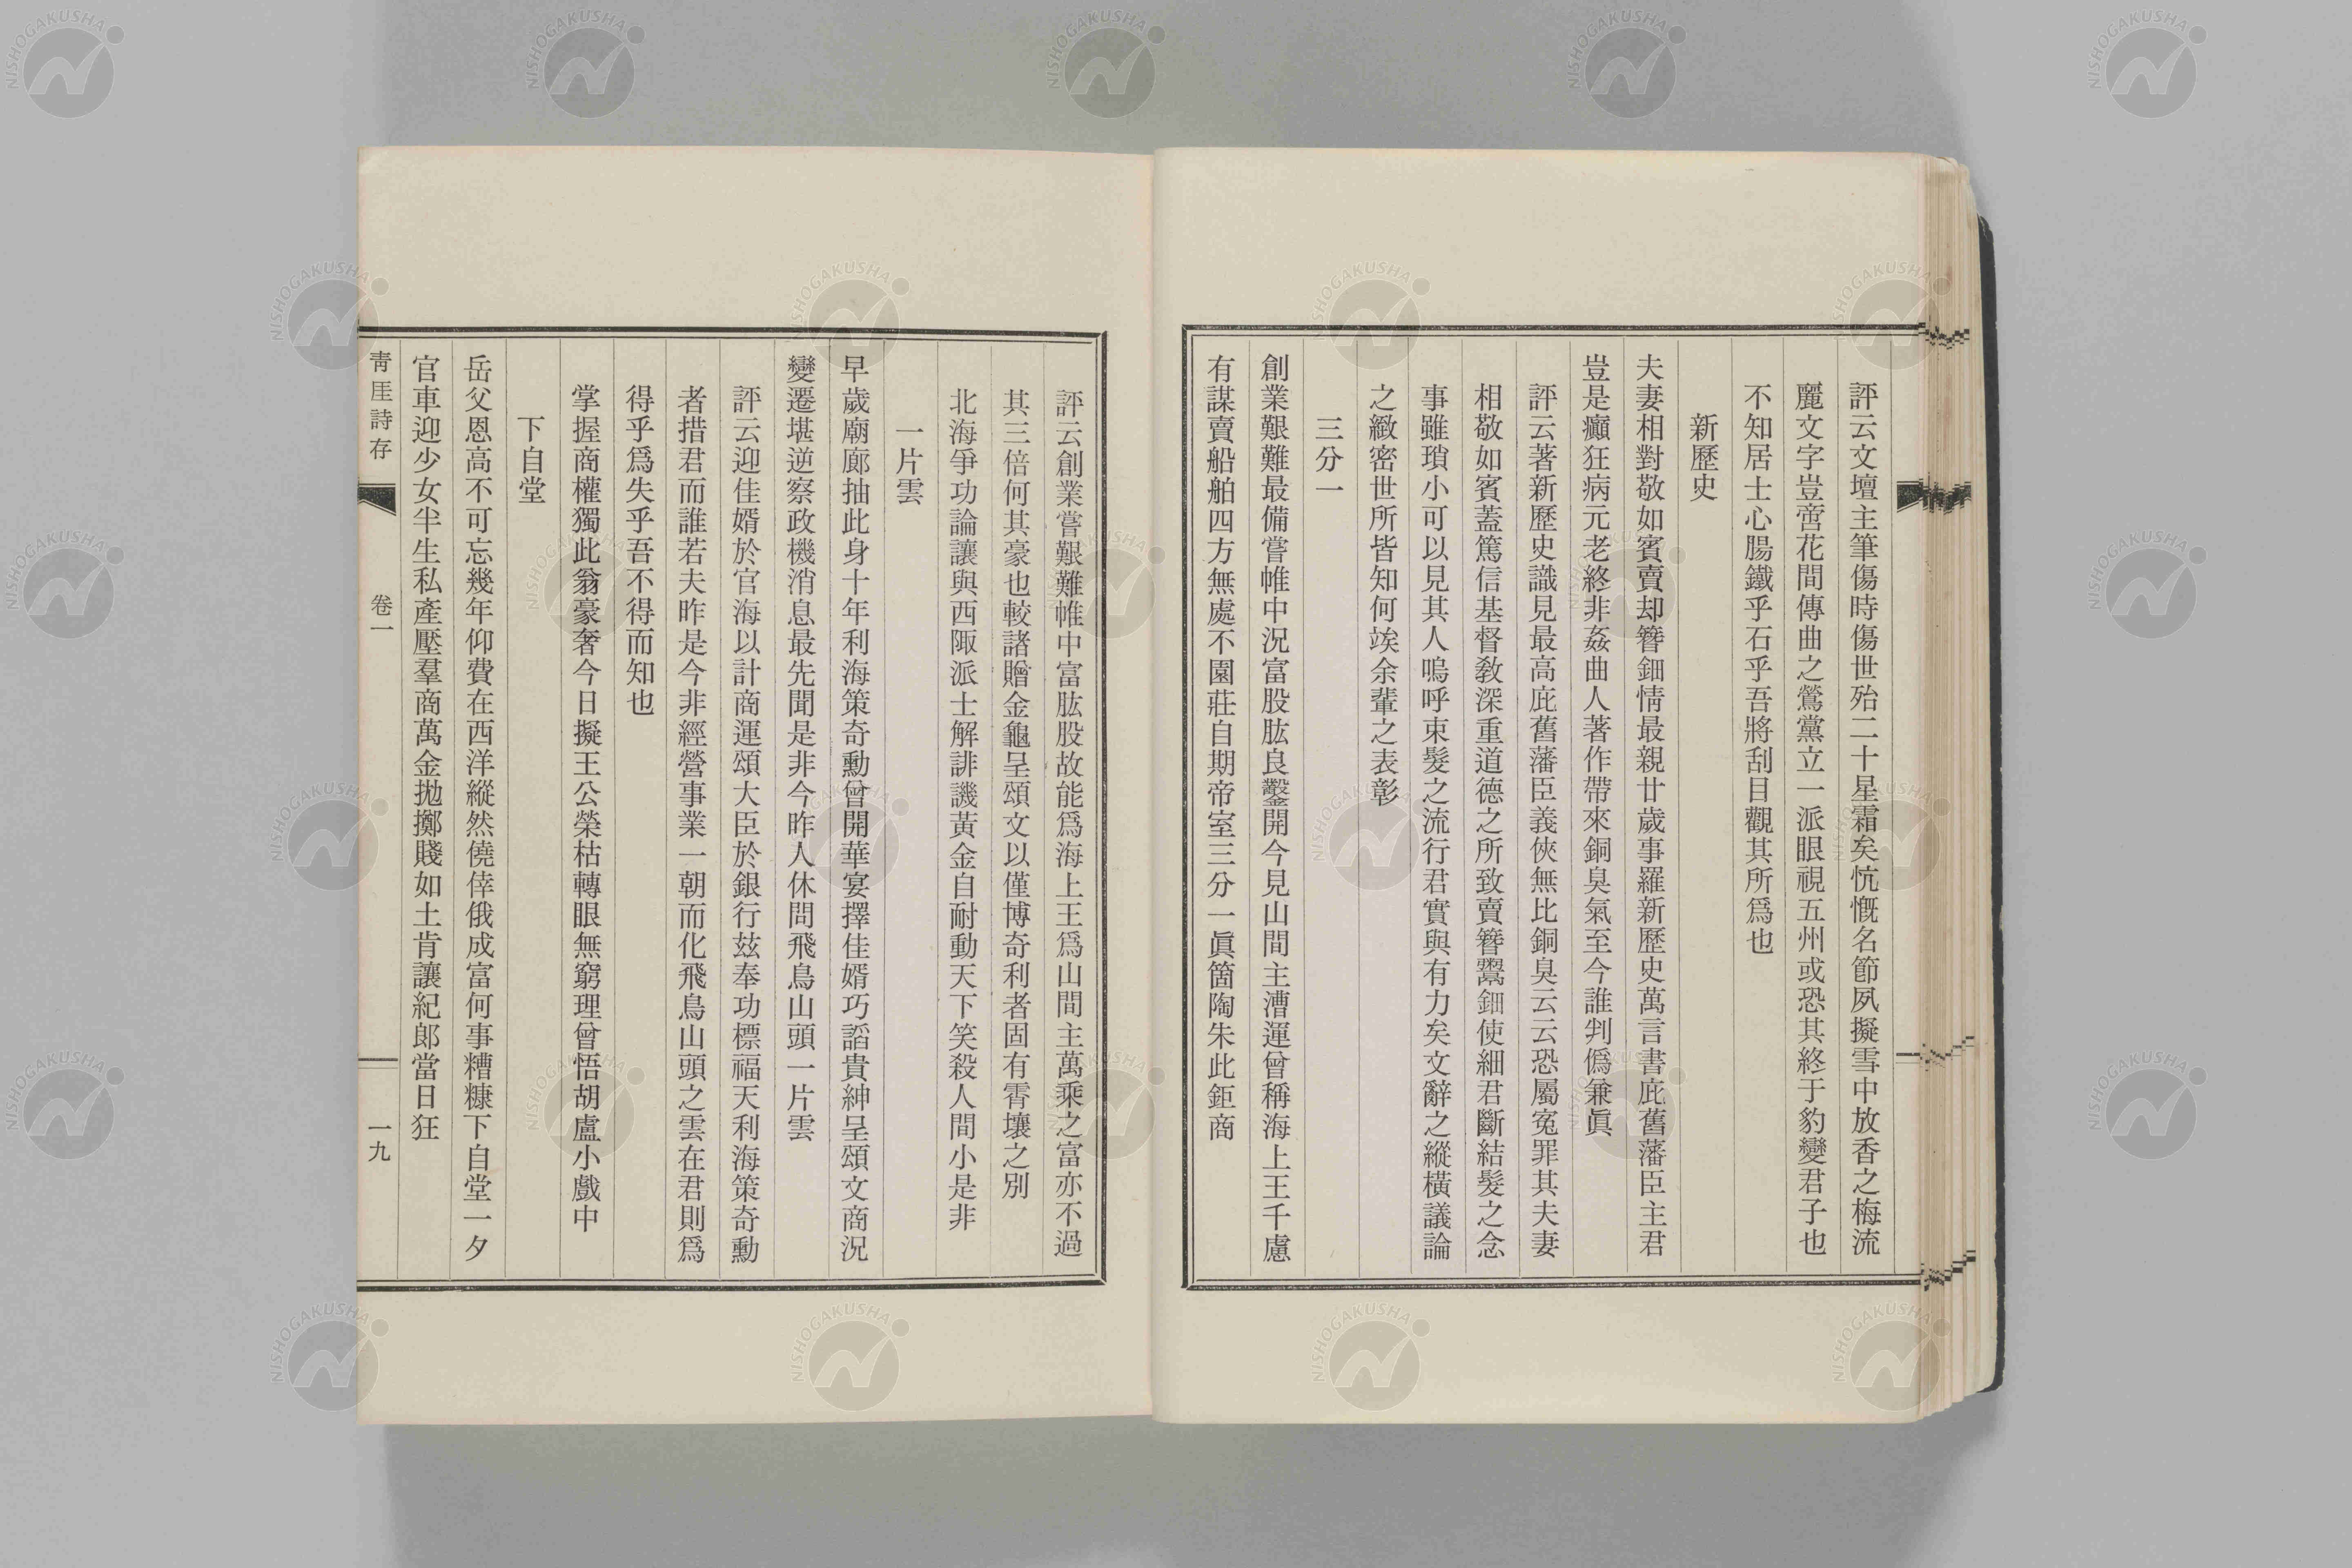 評云文壇主筆傷時傷世殆二十星霜矣忼慨名節夙擬雪中放香之梅流
麗文字豈啻花間傳曲之鶯黨立一派眼視五州或恐其終于豹變君子也
不知居士心腸鐵乎石乎吾將刮目觀其所爲也
新歷史
夫妻相對敬如賓賣却簪鈿情最親廿歲事羅新歷史萬言書庇舊藩臣主君
豈是癲狂病元老終非姦曲人著作帶來銅臭氣至今誰判僞兼眞
評云著新歷史識見最高庇舊藩臣義俠無比銅臭云云恐屬寃罪其夫妻
相敬如賓蓋篤信基督敎深重道德之所致賣簪鬻鈿使細君斷結髮之念
事雖瑣小可以見其人嗚呼束髮之流行君實與有力矣文辭之縱橫議論
之緻密世所皆知何竢余輩之表彰
三分一
創業艱難最備嘗帷中況富股肱良鑿開今見山間主漕運曾稱海上王千慮
有謀賣船舶四方無處不園莊自期帝室三分一眞箇陶朱此鉅商
評云創業嘗艱難帷中富肱股故能爲海上王爲山間主萬乘之富亦不過
其三倍何其豪也較諸贈金龜呈頌文以僅博奇利者固有霄壤之別
北海爭功論讓與西陬派士解誹譏黃金自耐動天下笑殺人間小是非
一片雲
早歲廟廊抽此身十年利海策奇勳曾開華宴擇佳婿巧謟貴紳呈頌文商況
變遷堪逆察政機消息最先聞是非今昨人休問飛鳥山頭一片雲
評云迎佳婿於官海以計商運頌大臣於銀行玆奉功標福天利海策奇勳
者措君而誰若夫昨是今非經營事業一朝而化飛鳥山頭之雲在君則爲
得乎爲失乎吾不得而知也
掌握商權獨此翁豪奢今日擬王公榮枯轉眼無窮理曾悟胡盧小戲中
下自堂
岳父恩高不可忘幾年仰費在西洋縱然僥倖俄成富何事糟糠下自堂一夕
官車迎少女半生私產壓羣商萬金抛擲賤如土肯讓紀郎當日狂
靑厓詩存
卷一
一九
NISHOGAKUSHA